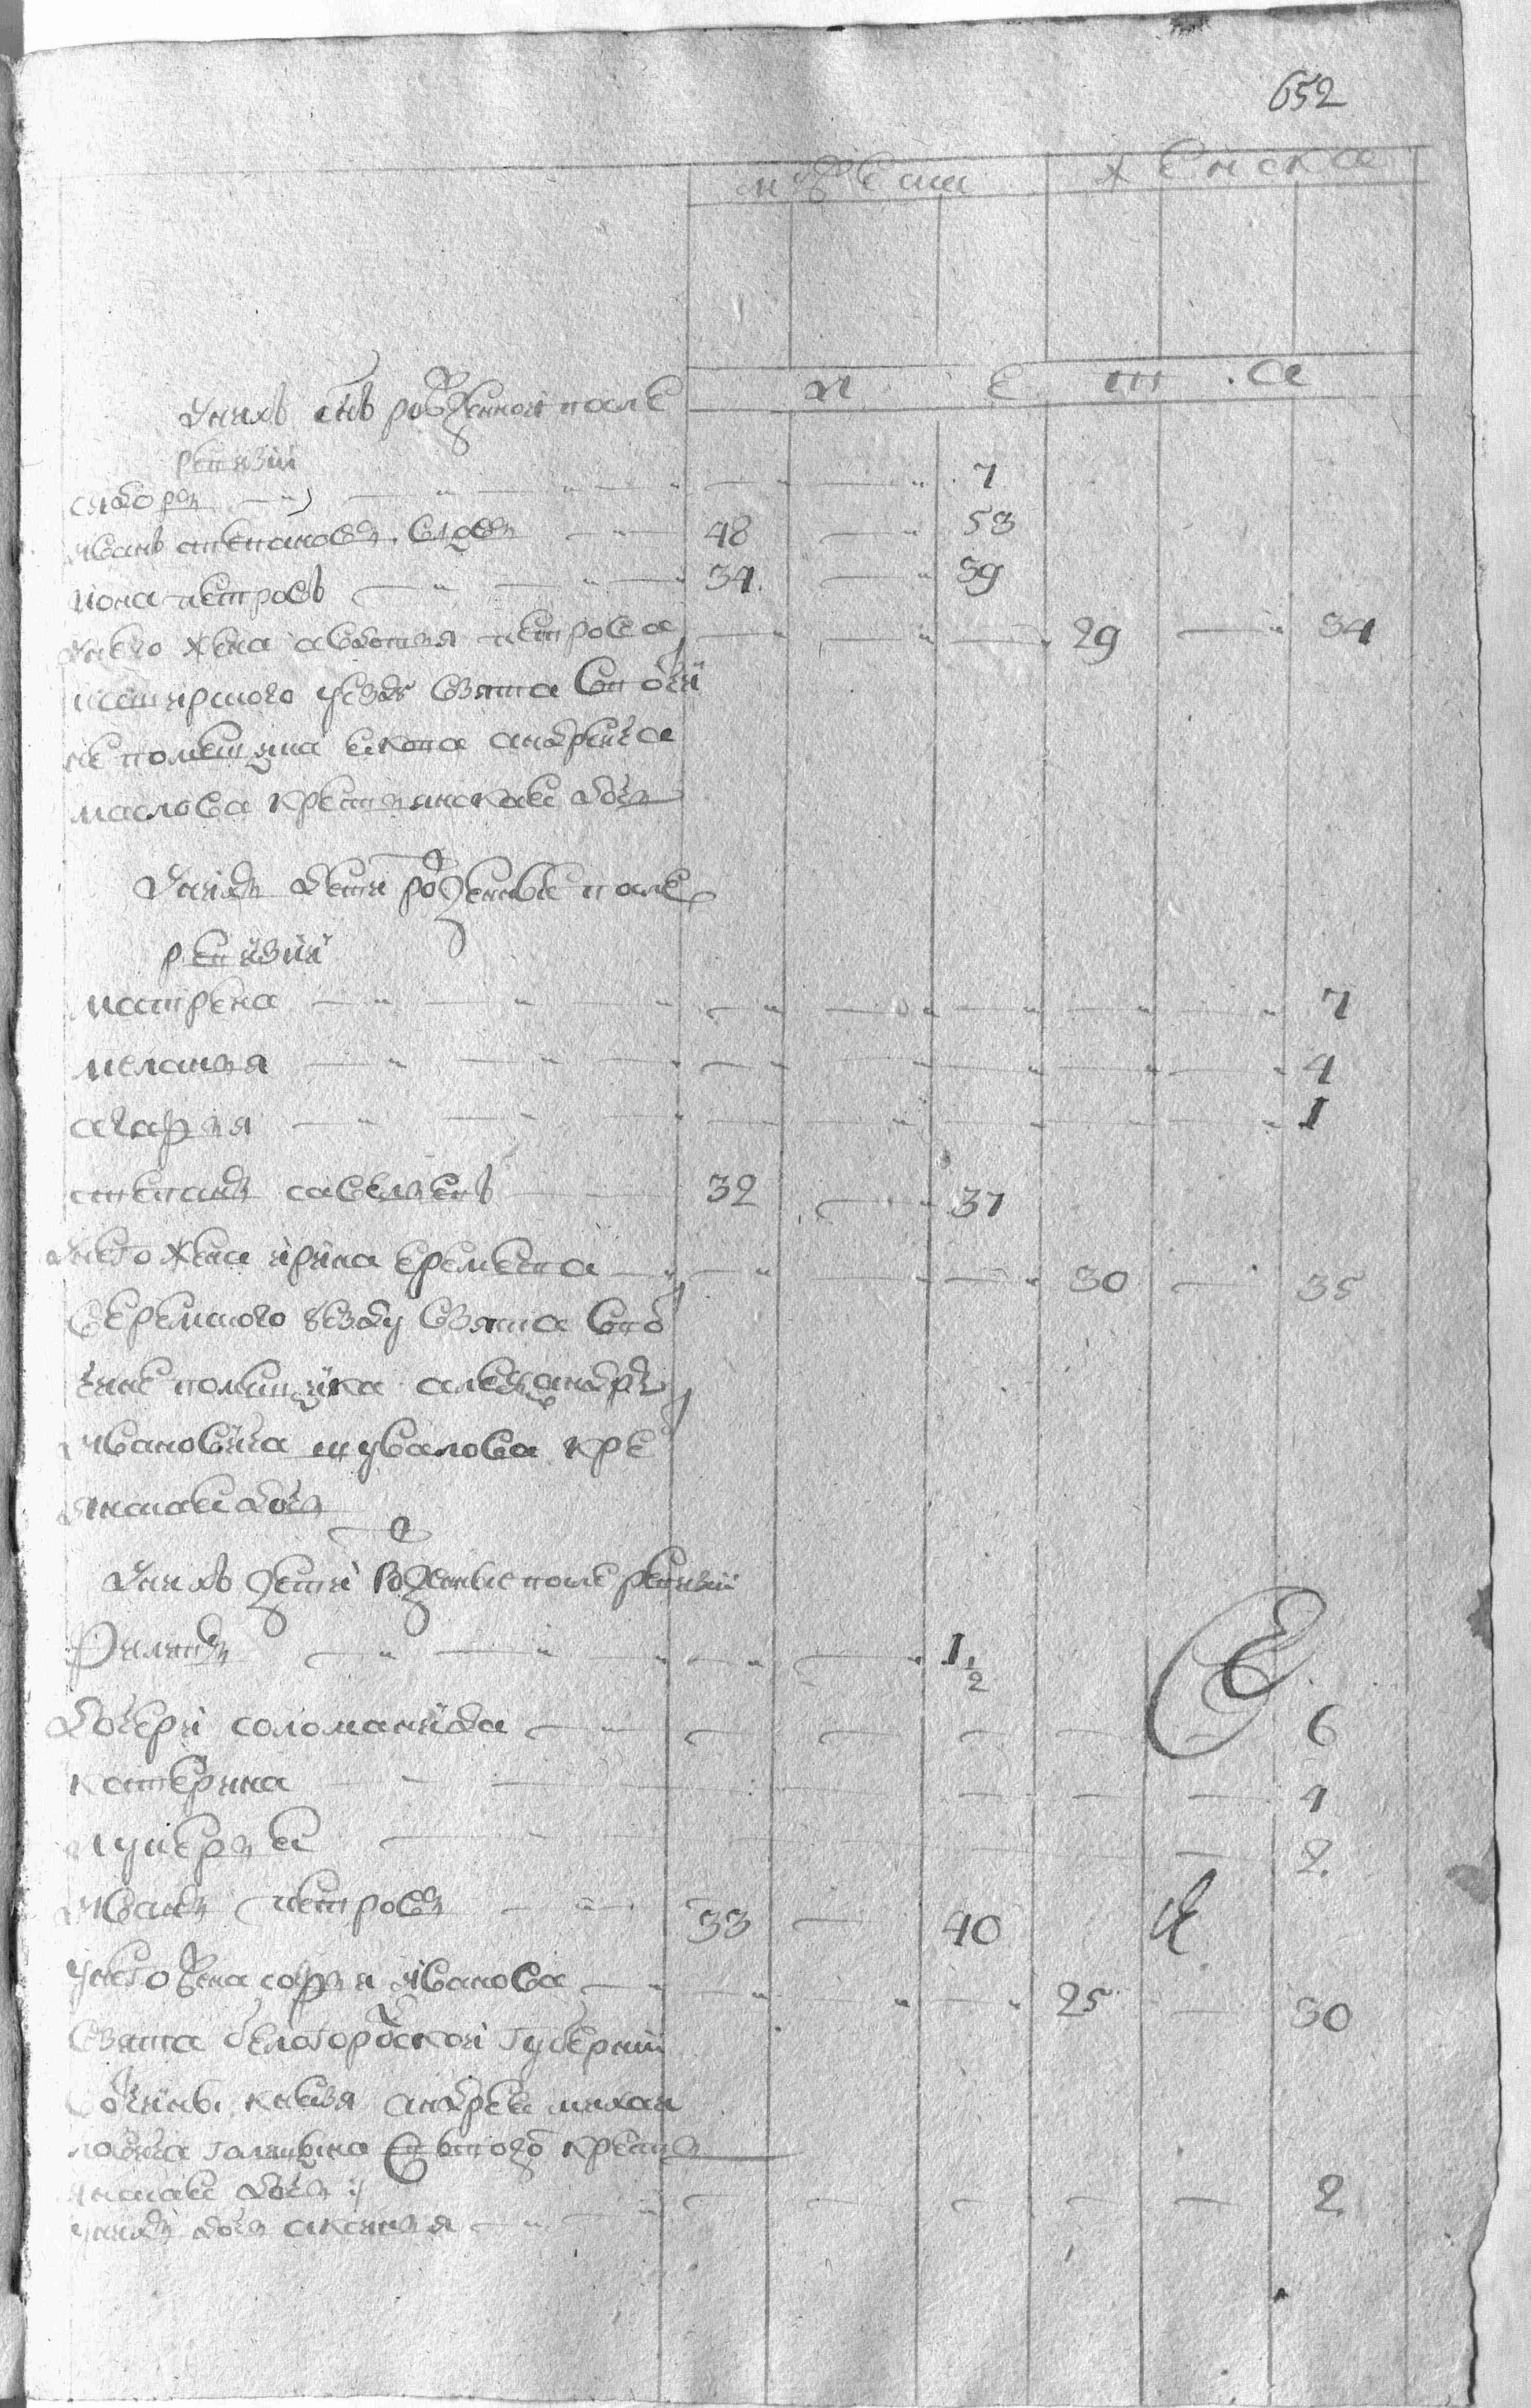 652
мужеска женска
л е т а
у них сынъ рожденной после
ревизии
сидоръ 7
иванъ степановъ вдовъ 48 53
иона петровъ 34 39
у него жена авдотья петрова 29 34
уезду взята в вотчи
не помещика андреича
маслова крестьянская дочь
у нихъ дети рожденные после
ревизии
матрена 7
меланья 4
агафья 1
степанъ савельевъ 32 37
у него жена ирина еремеева 30 35
уезду взята в вот
чине помещика александръ
ивановича шувалова кре
янская дочь
у нихъ дети рожденные после ревизии
филипъ 1 1/2
дочери соломанида 6
катерина 4
лукерья 2
иванъ петровъ 33 40
у него жена софья иванова 25 30
взята белогородской губернии
вотчины князя андрея михаи
ловича голицына крестья
янская дочь
у нихъ дочь аксинья 2